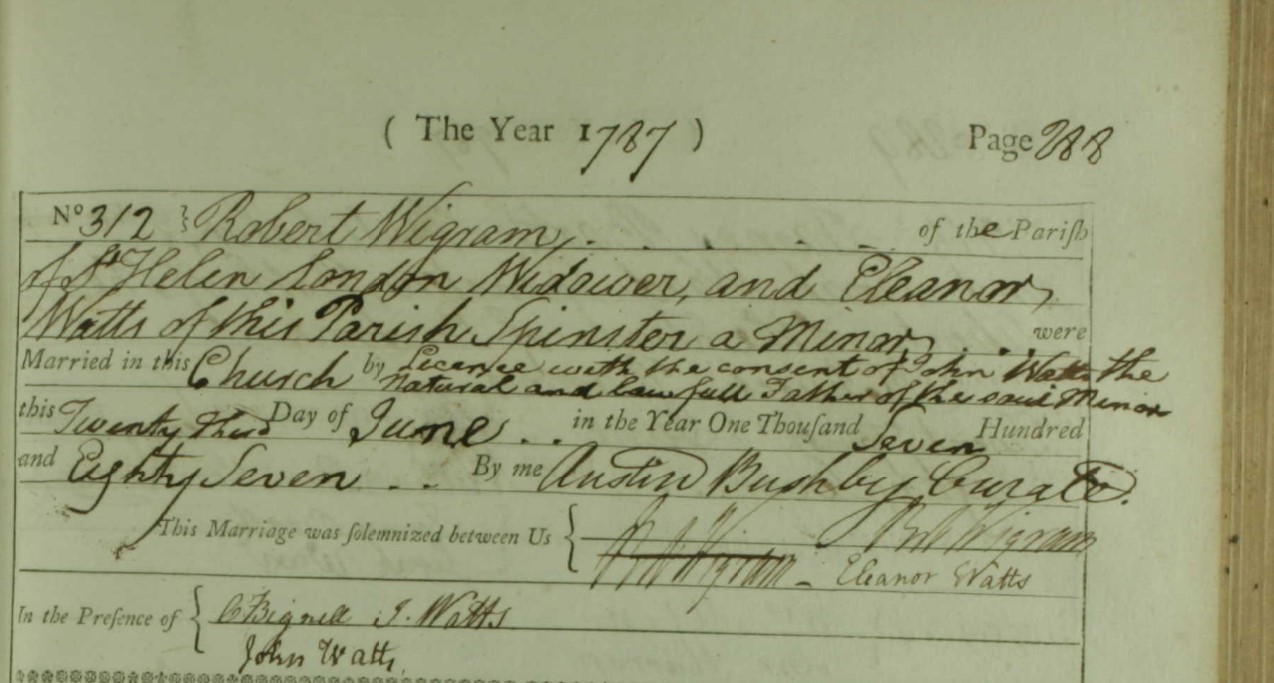 ( The Year 1787 ) Page 288
No 312 Robert Wigram, . . . . . of the Pariſh
of St Helen London Widower, and Eleanor
Watts of this Parish Spinster a Minor . . . were
Married in this Church by Licence with the consent of John Watts the
natural and lawfull Father of the said Minor
this Twenty third Day of June . . in the Year One Thouſand Seven Hundred
and Eighty Seven . . By me Austin Bushby Curate.
This Marriage was ſolemnized between Us { Rt Wigram
Rt Wigram - Eleanor Watts
In the Preſence of { C Bignell J. Watts
John Watts